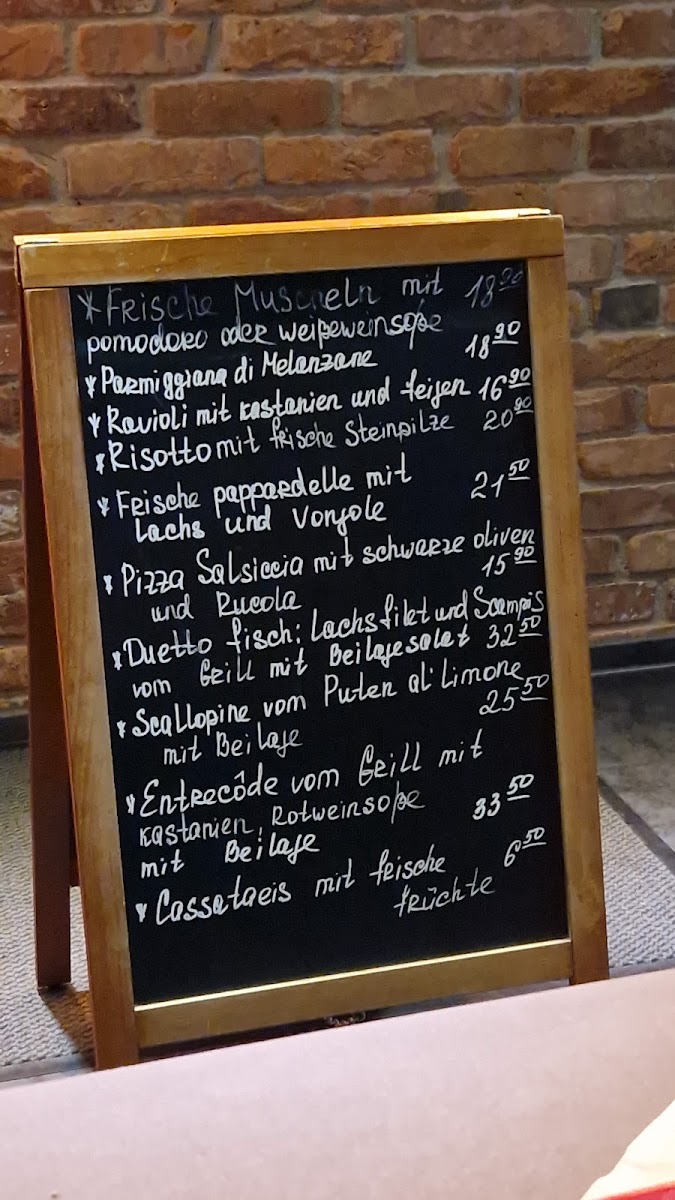 * Frische Muscheln mit 18 90
pomodoro oder weißweinsoße
* Parmiggiana di Melanzane 18 90
* Ravioli mit kastanien und feigen 16 90
* Risotto mit frische Steinpilze 20 90
* Frische pappardelle mit
Lachs und Vongole 21 50
* Pizza Salsiccia mit schwarze oliven
und Rucola 15 90
* Duetto fisch: Lachsfilet und Scampis
vom Grill mit Beilagesalat 32 50
* Scallopine vom Puten al' Limone
mit Beilage 25 50
* Entrecôde vom Grill mit
kastanien, Rotweinsoße
mit Beilage 33 50
* Cassataeis mit frische 6 50
früchte